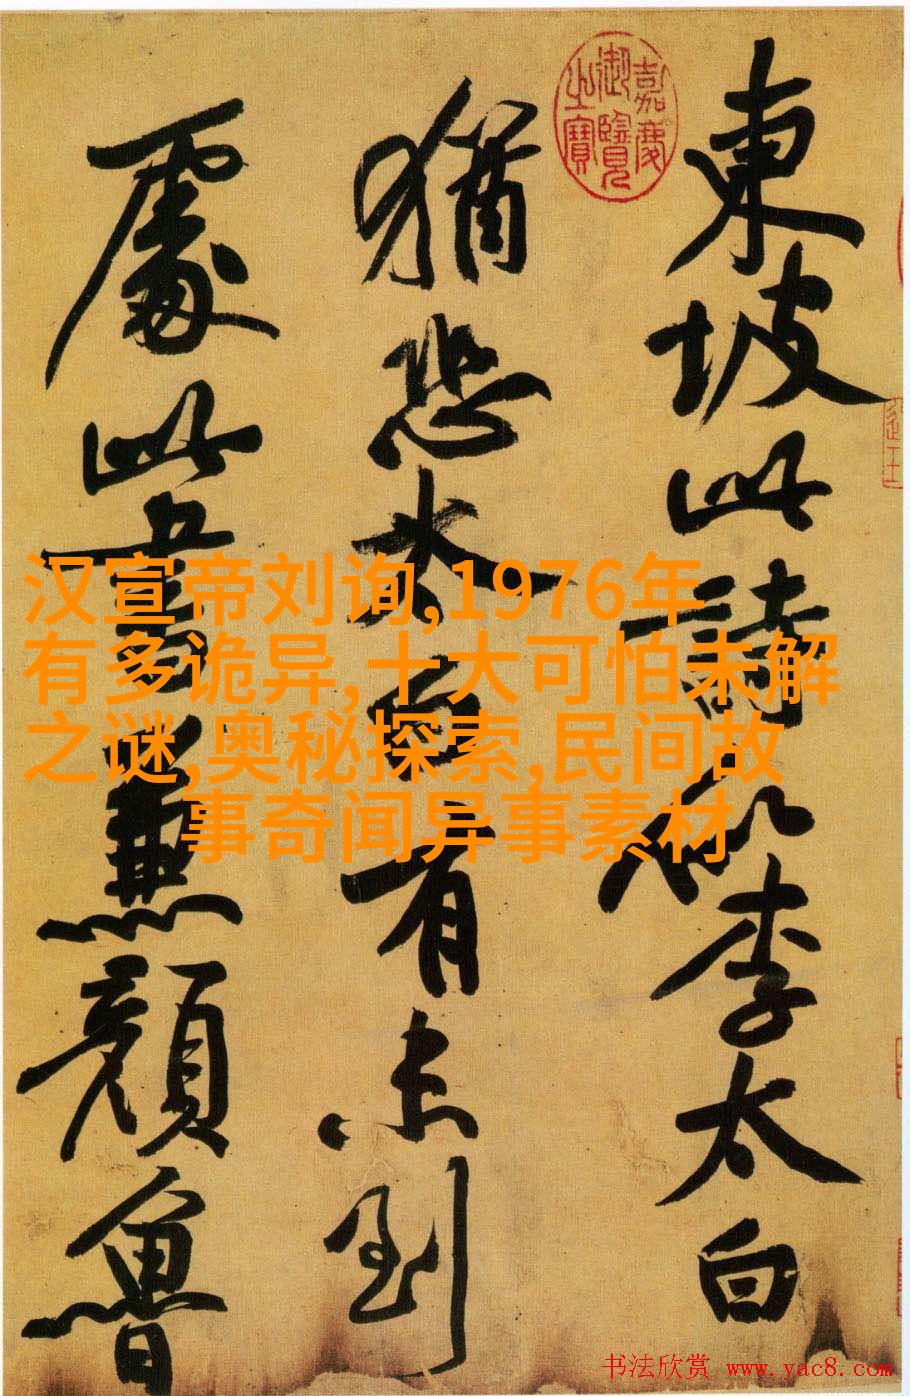 東坡此詩似李太白
猶恐太白有未到
處此書兼顏魯
嘉慶御覽之寶
汉宣帝刘询,1976年
有多诡异,十大可怕未解
之谜,奥秘探索,民间故
事奇闻异事素材
书法欣赏 www.yac8.com